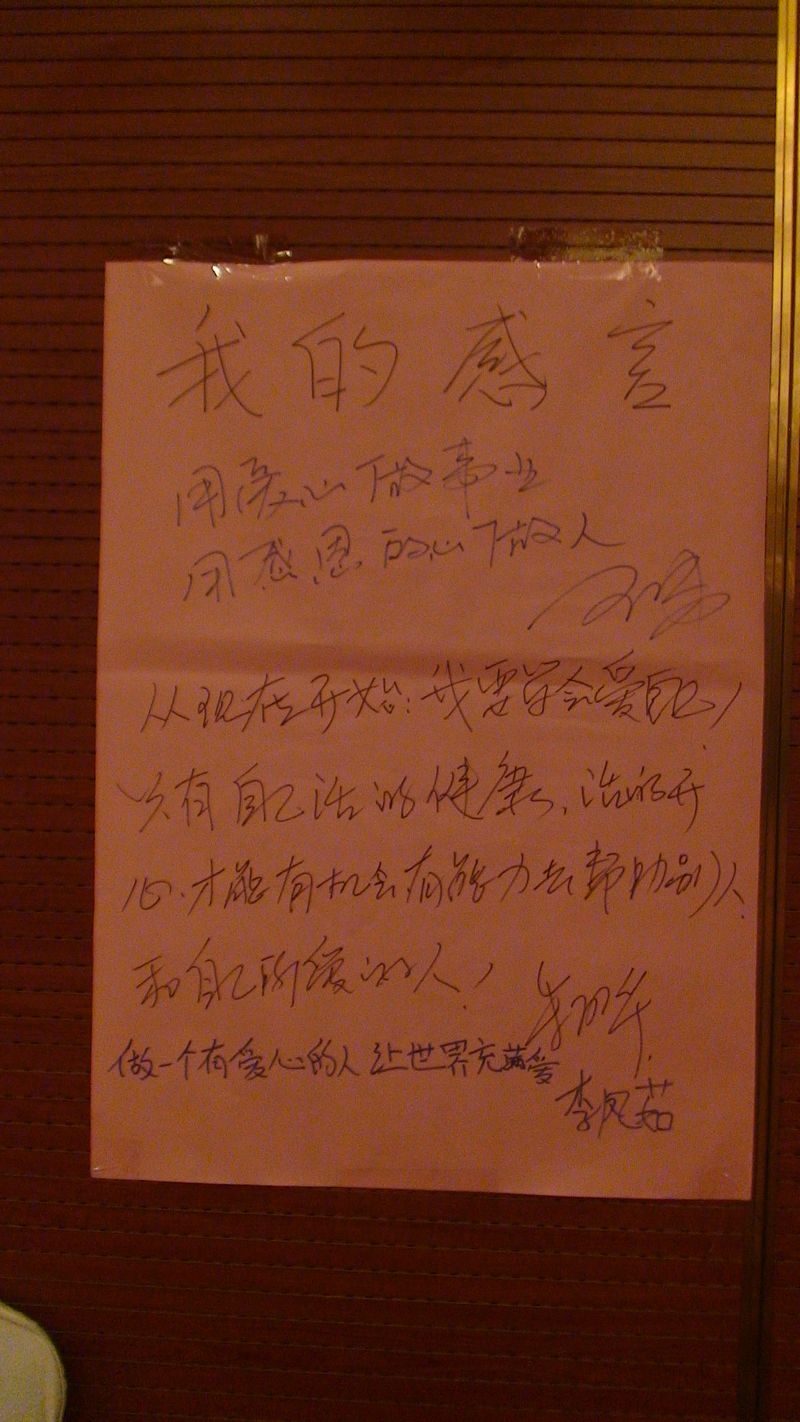 我的感言
用爱心做事业
用感恩的心做人
从现在开始:我要学会爱自己!
只有自己活的健康、活的开
心、才能有机会有能力去帮助别人
和自己所爱的人!
做一个有爱心的人 让世界充满爱
李凤茹